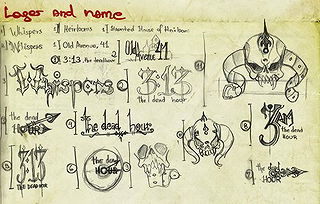 Logos and name
1) Whispers
3) Heirlooms
5) Haunted House of Heirlooms
2) Whispers
4) Old Avenue, 41
6) 3:13 the deadhour
Old Avenue 41
Whispers
3:13
the dead hour
the dead HOUR
the dead hour
3AM
the dead HOUR
3:13
THE DEAD HOUR
the dead HOUR
the dead HOUR